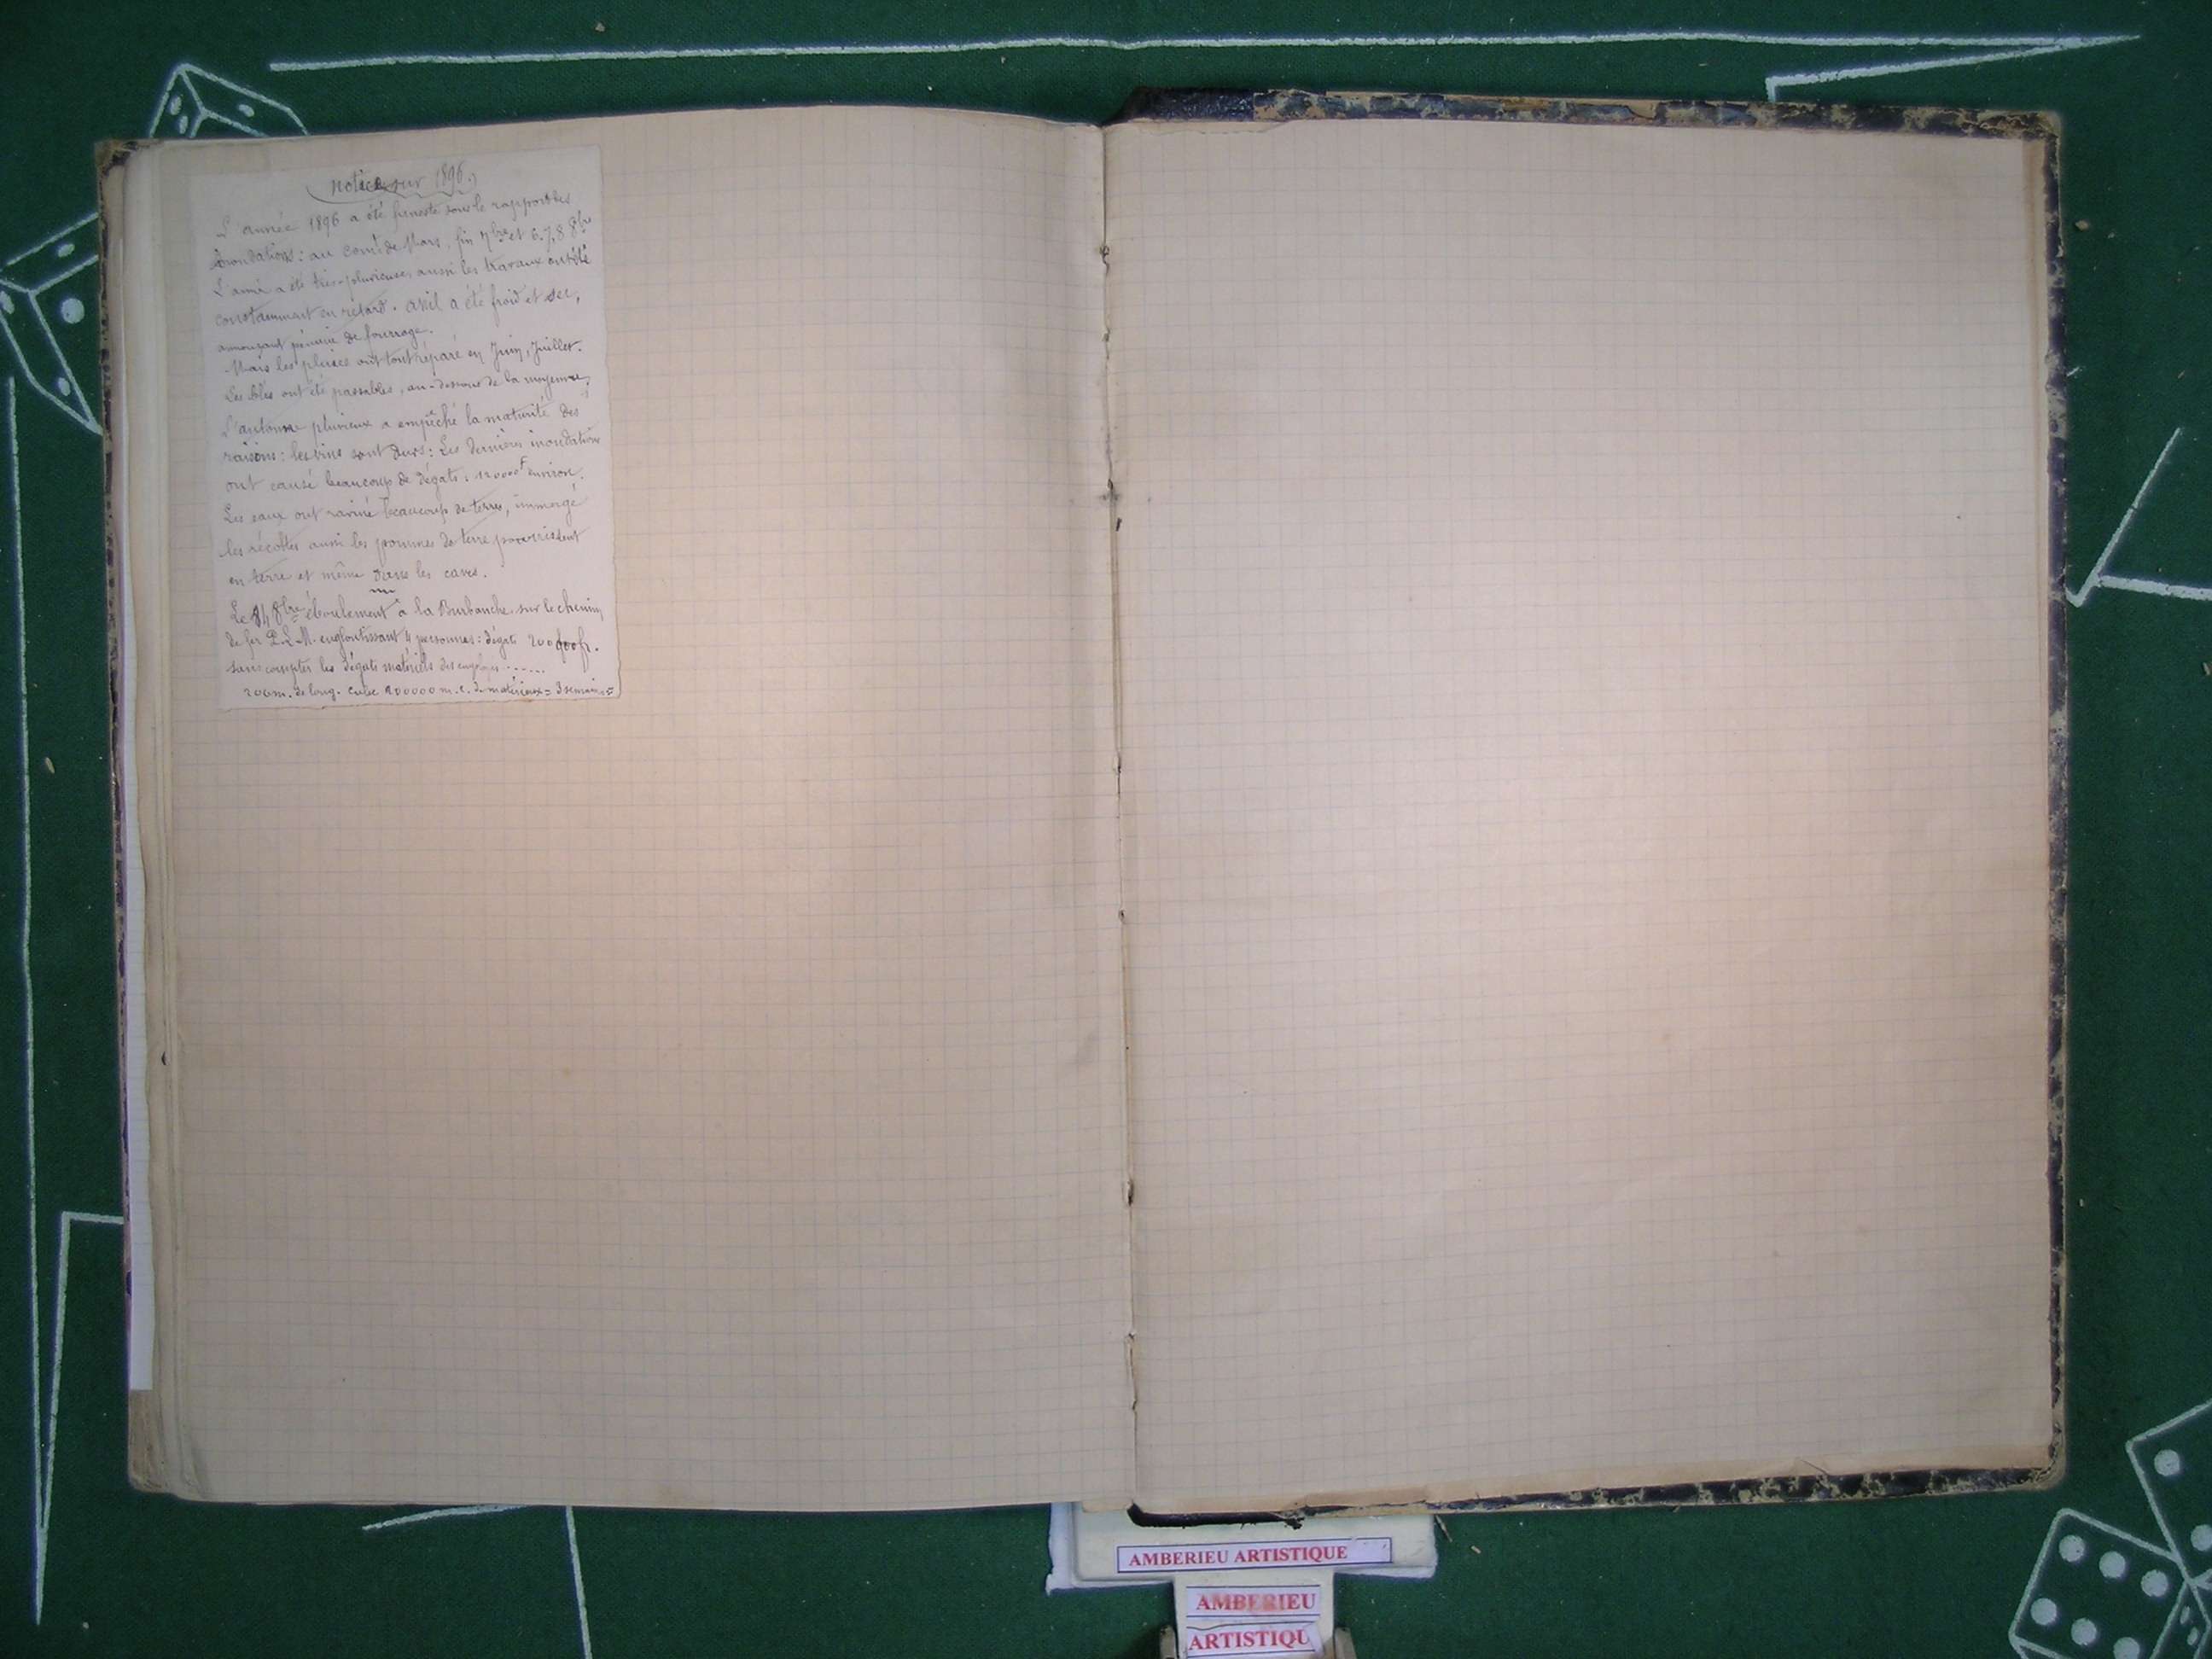 notice sur 1896.
L'année 1896 a été funeste sous le rapport des
inondations : au comt de Mars, fin 7bre et 6.7.8 8bre
L'année a été très-pluvieuse, aussi les travaux ont été
constamment en retard. avril a été froid et sec,
annonçant pénurie de fourrage.
Mais les pluies ont tout réparé en Juin, Juillet.
Les blés ont été passables, au-dessous de la moyenne,
L'automne pluvieux a empêché la maturité des
raisins : les vins sont durs : Les dernières inondations
ont causé beaucoup de dégats : 12000f environ.
Les eaux ont raviné beaucoup de terres, immergé
les récoltes aussi les pommes de terre pourrissent
en terre et même dans les caves.
Le 8bre éboulement à la Burbanche, sur le chemin
de fer P.L.M. engloutissant 4 personnes : dégats 200000fr.
sans compter les dégats matériels des
200m. de long. cube 100000 m.c. de matériaux = 3 semaines
AMBERIEU ARTISTIQUE
AMBERIEU
ARTISTIQU